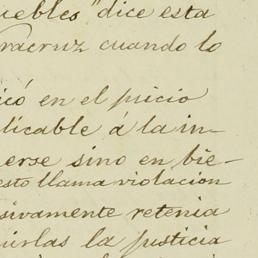 uebles" dice esta
eracruz cuando lo
icó en el juicio
licable á la in-
erse sino en bie-
esto llama violacion
sivamente retenia
uirlas la justicia